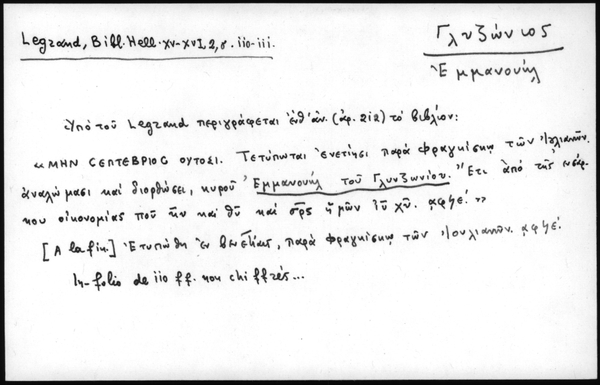 Legrand, Bibl. Hell. XV-XVI, 2, σ. 110-111.
Γλυζώνιος
Ἐμμανουήλ
Ὑπὸ τοῦ Legrand περιγράφεται ἐνθ' ἀν. (ἀρ. 212) τὸ βιβλίον:
«ΜΗΝ CΕΠΤΕΒΡΙΟC ΟΥΤΟCΙ. Τετύπωται Ἐνετίῃσι παρὰ Φραγκίσκῳ τῶν Ἰουλιανῶν.
ἀναλώμασι καὶ διορθώσει, κυροῦ Ἐμμανουήλ τοῦ Γλυζωνίου. Ἔτι ἀπὸ τῆς ἐνσάρ-
κου οἰκονομίας τοῦ κυ καὶ θυ καὶ σρς ἡμῶν ιυ χυ. αφϟε΄.»
[A la fin:] Ἐτυπώθη ἐν Βενετίαις, παρὰ Φραγκίσκῳ τῶν Ἰουλιανῶν. αφϟε΄.
In-folio de 110 ff. non chiffrés...